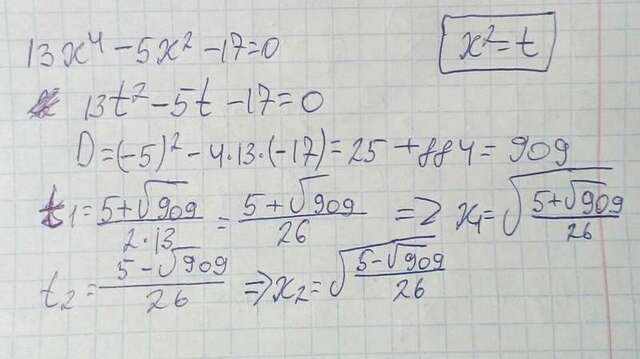 13x⁴ - 5x² - 17 = 0
x² = t
13t² - 5t - 17 = 0
D = (-5)² - 4·13·(-17) = 25 + 884 = 909
t₁ = (5+√909)/(2·13) = (5+√909)/26 => x₁ = √((5+√909)/26)
t₂ = (5-√909)/26 => x₂ = √((5-√909)/26)